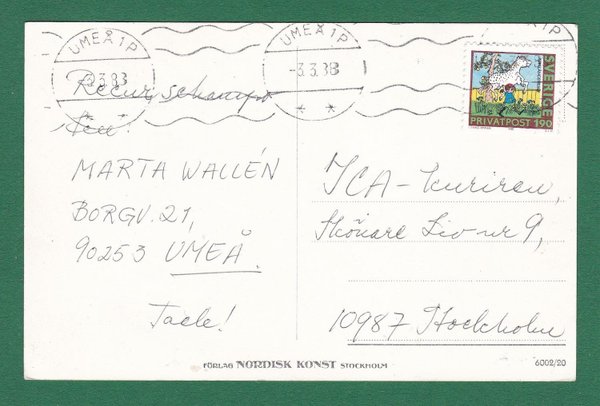 UMEÅ 1P
3.3.83
UMEÅ 1P
-3.3.83
SVERIGE
PRIVATPOST 190
MARTA WALLÉN
BORGV. 21,
90253 UMEÅ.
Tack!
ICA-kuriren,
Skönare Liv nr 9,
10987 Stockholm
FÖRLAG NORDISK KONST STOCKHOLM
6002/20